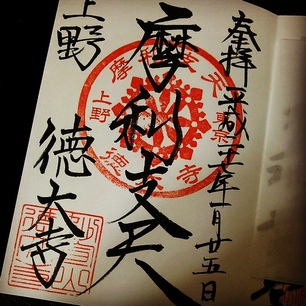 奉拝 平成 年 月廿五日
摩利支天
上野 徳大寺
摩利支天
東京
上野
徳大寺